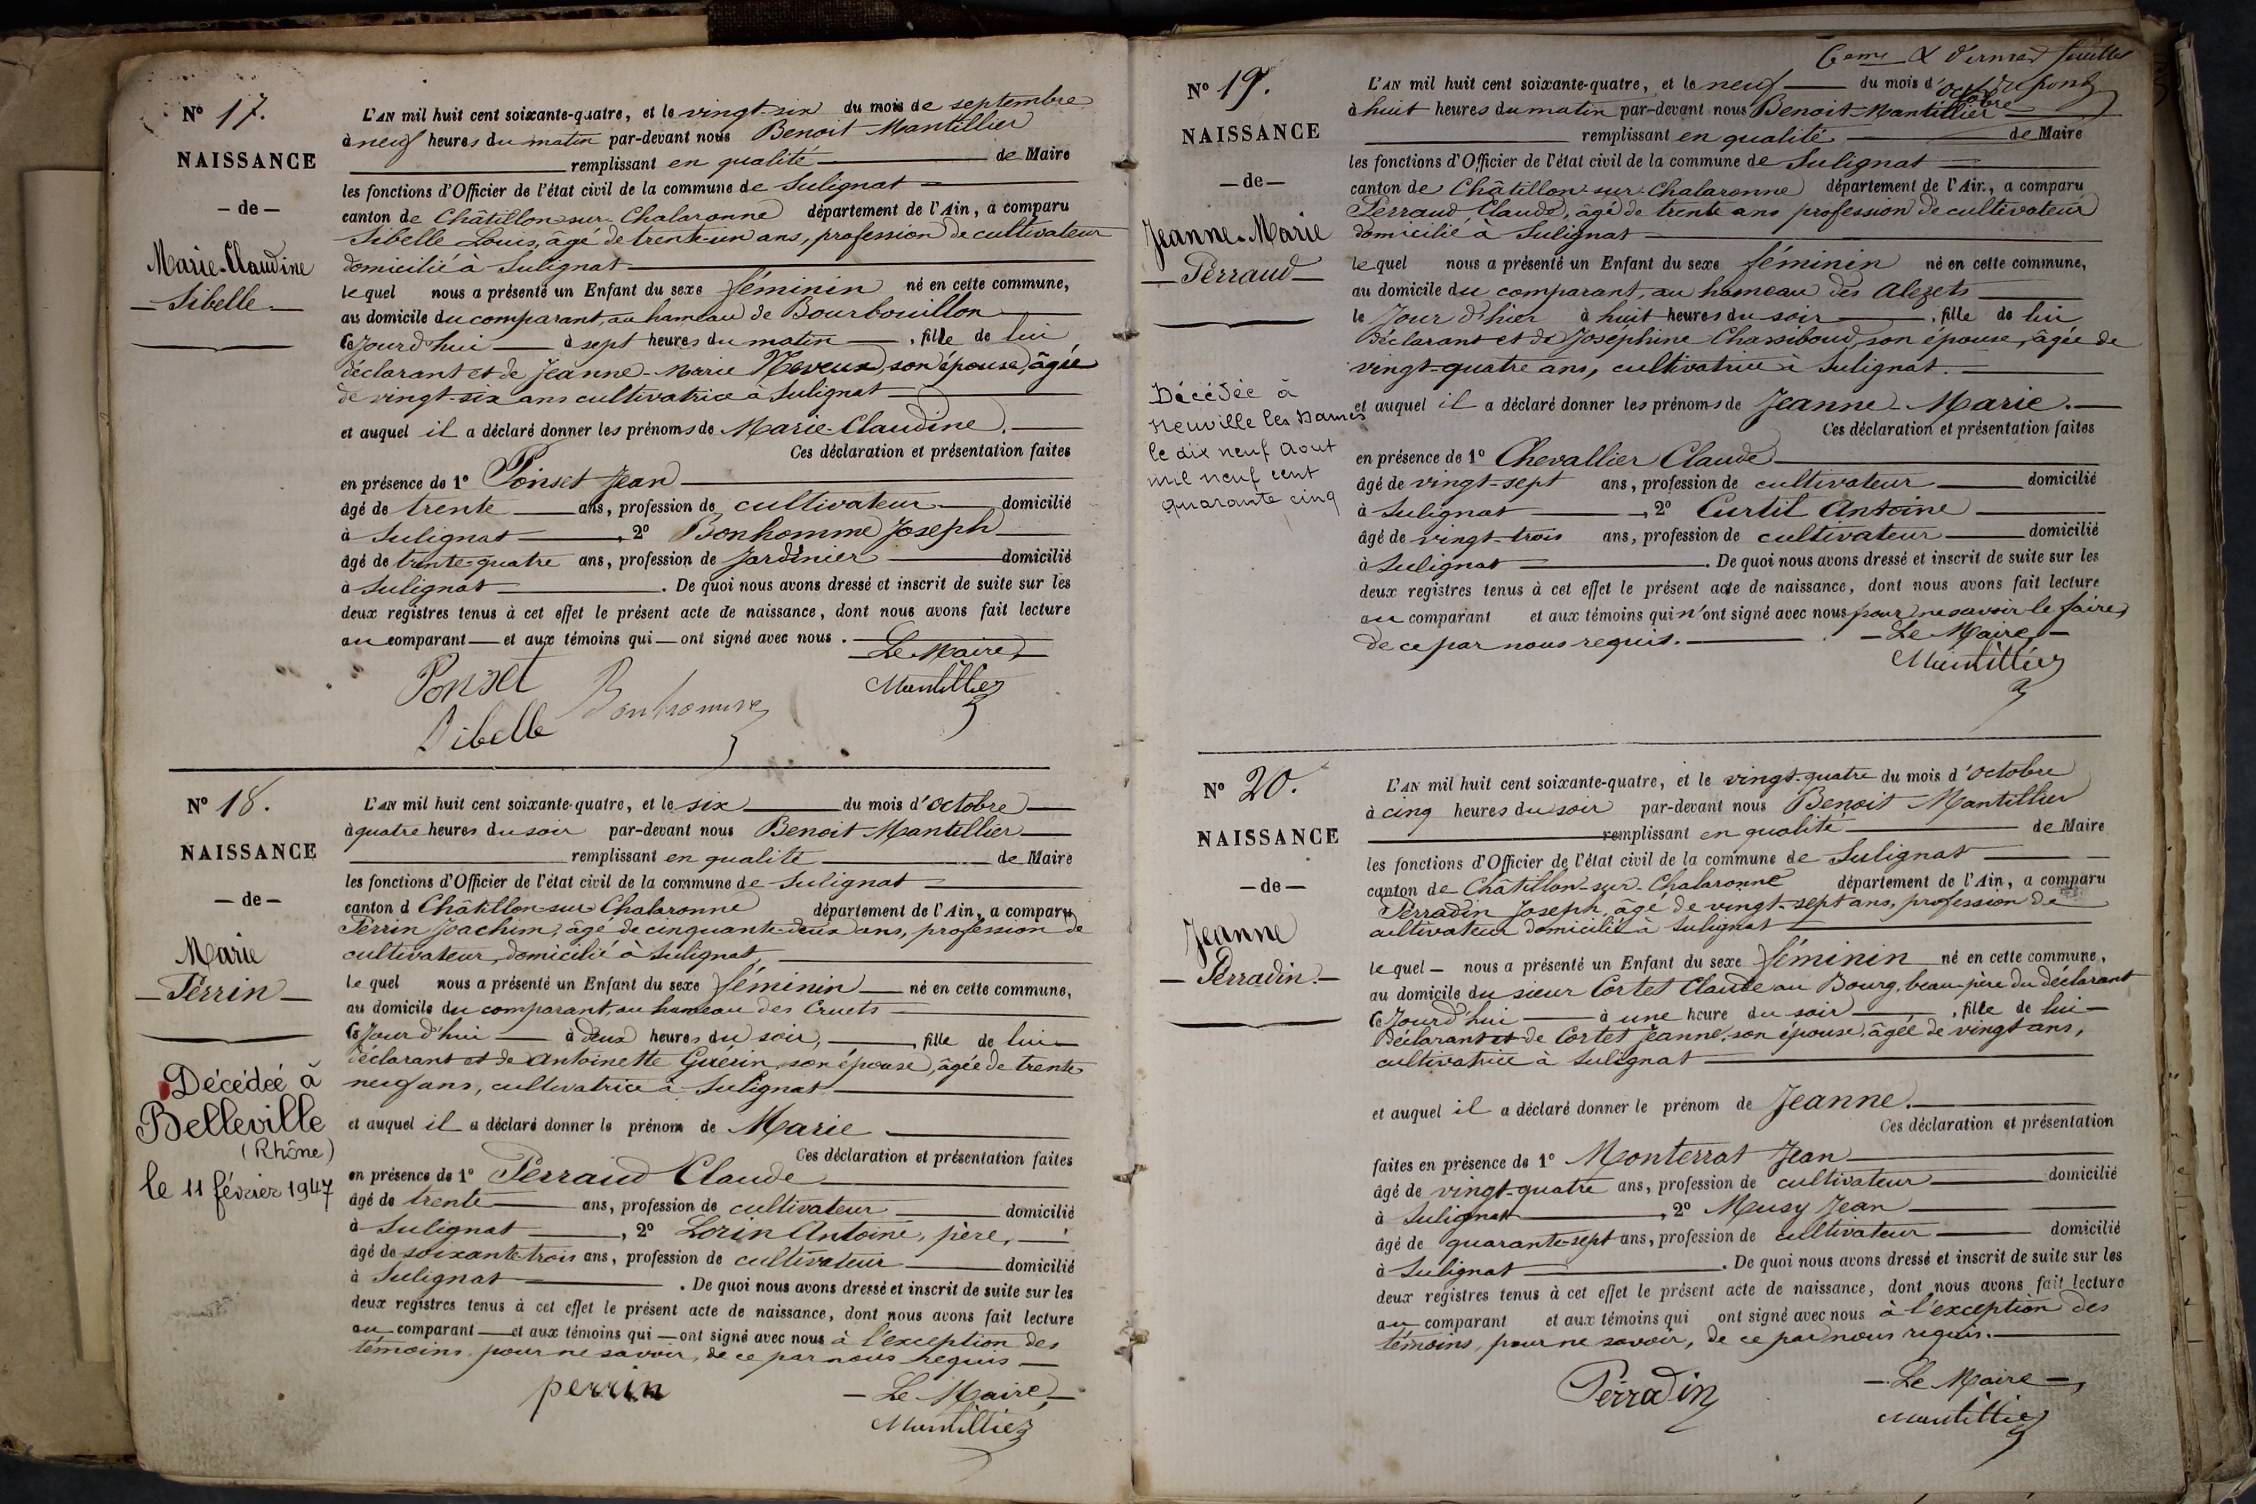 N° 17.
NAISSANCE
— de —
Marie-Claudine
— Sibelle —
L'AN mil huit cent soixante-quatre, et le vingt-six du mois de septembre
à neuf heures du matin par-devant nous Benoit Mantillier
remplissant en qualité de Maire
les fonctions d'Officier de l'état civil de la commune de Sulignat
canton de Châtillon-sur-Chalaronne département de l'Ain, a comparu
Sibelle Louis, âgé de trente-un ans, profession de cultivateur
domicilié à Sulignat
lequel nous a présenté un Enfant du sexe féminin né en cette commune,
au domicile du comparant, au hameau de Bourbouillon
cejourd'hui à sept heures du matin, fille de lui
déclarant et de Jeanne-Marie Neveux, son épouse, âgée
de vingt-six ans cultivatrice à Sulignat
et auquel il a déclaré donner les prénoms de Marie-Claudine.
Ces déclaration et présentation faites
en présence de 1° Ponset Jean
âgé de trente ans, profession de cultivateur domicilié
à Sulignat, 2° Bonhomme Joseph
âgé de trente-quatre ans, profession de Jardinier domicilié
à Sulignat. De quoi nous avons dressé et inscrit de suite sur les
deux registres tenus à cet effet le présent acte de naissance, dont nous avons fait lecture
au comparant — et aux témoins qui — ont signé avec nous.
Le Maire,
Ponset
Bonhomme
Mantillier
Sibelle
N° 18.
NAISSANCE
— de —
Marie
— Perrin —
Décédée à
Belleville
(Rhône)
le 11 février 1947
L'AN mil huit cent soixante-quatre, et le six du mois d'octobre
à quatre heures du soir par-devant nous Benoit Mantillier
remplissant en qualité de Maire
les fonctions d'Officier de l'état civil de la commune de Sulignat
canton d Châtillon-sur-Chalaronne département de l'Ain, a comparu
Perrin Joachim, âgé de cinquante-deux ans, profession de
cultivateur, domicilié à Sulignat,
lequel nous a présenté un Enfant du sexe féminin né en cette commune,
au domicile du comparant, au hameau des Cruets
cejourd'hui à deux heures du soir, fille de lui
déclarant et de Antoinette Guérin, son épouse, âgée de trente
neuf ans, cultivatrice à Sulignat
et auquel il a déclaré donner le prénom de Marie
Ces déclaration et présentation faites
en présence de 1° Perraud Claude
âgé de trente ans, profession de cultivateur domicilié
à Sulignat, 2° Lorin Antoine, père,
âgé de soixante-trois ans, profession de cultivateur domicilié
à Sulignat. De quoi nous avons dressé et inscrit de suite sur les
deux registres tenus à cet effet le présent acte de naissance, dont nous avons fait lecture
au comparant — et aux témoins qui — ont signé avec nous à l'exception des
témoins, pour ne savoir, de ce par nous requis —
perrin
— Le Maire, —
Mantillier
6eme & dernier feuillet
N° 19.
NAISSANCE
— de —
Jeanne-Marie
— Perraud —
Décédée à
Neuville les Dames
le dix neuf Aout
mil neuf cent
quarante cinq
L'AN mil huit cent soixante-quatre, et le neuf du mois d'octobre
à huit heures du matin par-devant nous Benoit Mantillier
remplissant en qualité de Maire
les fonctions d'Officier de l'état civil de la commune de Sulignat
canton de Châtillon-sur-Chalaronne département de l'Ain, a comparu
Perraud, Claude, âgé de trente ans profession de cultivateur
domicilié à Sulignat
lequel nous a présenté un Enfant du sexe féminin né en cette commune,
au domicile du comparant, au hameau des Alezets
le Jour d'hier à huit heures du soir, fille de lui
Déclarant et de Joséphine Chassiboud, son épouse, âgée de
vingt-quatre ans, cultivatrice à Sulignat.
et auquel il a déclaré donner les prénoms de Jeanne-Marie.
Ces déclaration et présentation faites
en présence de 1° Chevallier Claude
âgé de vingt-sept ans, profession de cultivateur domicilié
à Sulignat, 2° Curtil Antoine
âgé de vingt-trois ans, profession de cultivateur domicilié
à Sulignat. De quoi nous avons dressé et inscrit de suite sur les
deux registres tenus à cet effet le présent acte de naissance, dont nous avons fait lecture
au comparant et aux témoins qui n'ont signé avec nous pour ne savoir le faire,
de ce par nous requis.
— Le Maire, —
Mantillier
N° 20.
NAISSANCE
— de —
Jeanne
— Perradin. —
L'AN mil huit cent soixante-quatre, et le vingt-quatre du mois d'octobre
à cinq heures du soir par-devant nous Benoit Mantillier
remplissant en qualité de Maire
les fonctions d'Officier de l'état civil de la commune de Sulignat
canton de Châtillon-sur-Chalaronne département de l'Ain, a comparu
Perradin Joseph, âgé de vingt-sept ans, profession de
cultivateur domicilié à Sulignat
lequel — nous a présenté un Enfant du sexe féminin né en cette commune,
au domicile du sieur Cortet Claude au Bourg, beau-père du déclarant
cejourd'hui à une heure du soir, fille de lui
Déclarant et de Cortet Jeanne, son épouse, âgée de vingt ans,
cultivatrice à Sulignat
et auquel il a déclaré donner le prénom de Jeanne.
Ces déclaration et présentation
faites en présence de 1° Monterrat Jean
âgé de vingt-quatre ans, profession de cultivateur domicilié
à Sulignat, 2° Musy Jean
âgé de quarante-sept ans, profession de cultivateur domicilié
à Sulignat. De quoi nous avons dressé et inscrit de suite sur les
deux registres tenus à cet effet le présent acte de naissance, dont nous avons fait lecture
au comparant et aux témoins qui ont signé avec nous à l'exception des
témoins, pour ne savoir, de ce par nous requis.
Perradin
— Le Maire —,
Mantillier